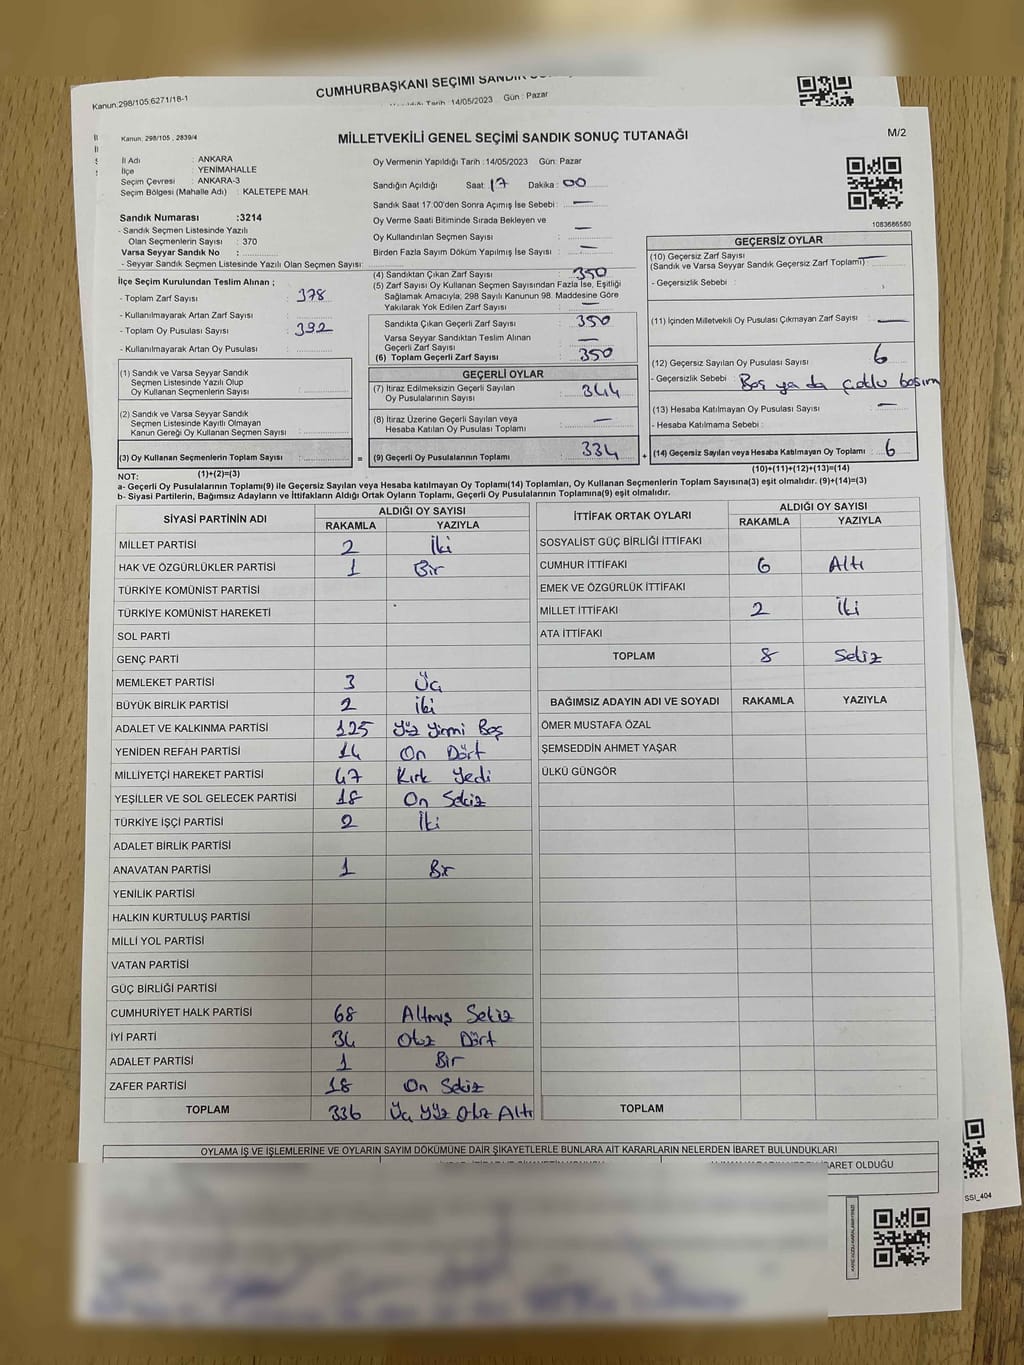 Kanun:298/105:6271/18-1
CUMHURBAŞKANI SEÇİMİ
Tarih : 14/05/2023 Gün : Pazar
Kanun: 298/105 , 2839/4
MİLLETVEKİLİ GENEL SEÇİMİ SANDIK SONUÇ TUTANAĞI
M/2
İl Adı : ANKARA
İlçe : YENİMAHALLE
Seçim Çevresi : ANKARA-3
Seçim Bölgesi (Mahalle Adı) : KALETEPE MAH.
Sandık Numarası :3214
- Sandık Seçmen Listesinde Yazılı
Olan Seçmenlerin Sayısı : 370
Varsa Seyyar Sandık No :
- Seyyar Sandık Seçmen Listesinde Yazılı Olan Seçmen Sayısı:
Oy Vermenin Yapıldığı Tarih :14/05/2023 Gün: Pazar
Sandığın Açıldığı Saat: 17 Dakika : 00
Sandık Saat 17:00'den Sonra Açımış İse Sebebi : —
Oy Verme Saati Bitiminde Sırada Bekleyen ve
Oy Kullandırılan Seçmen Sayısı —
Birden Fazla Sayım Döküm Yapılmış İse Sayısı : —
1083686580
İlçe Seçim Kurulundan Teslim Alınan ;
- Toplam Zarf Sayısı : 378
- Kullanılmayarak Artan Zarf Sayısı :
- Toplam Oy Pusulası Sayısı : 392
- Kullanılmayarak Artan Oy Pusulası :
(1) Sandık ve Varsa Seyyar Sandık
Seçmen Listesinde Yazılı Olup
Oy Kullanan Seçmenlerin Sayısı :
(2) Sandık ve Varsa Seyyar Sandık
Seçmen Listesinde Kayıtlı Olmayan
Kanun Gereği Oy Kullanan Seçmen Sayısı:
(3) Oy Kullanan Seçmenlerin Toplam Sayısı :
(1)+(2)=(3)
(4) Sandıktan Çıkan Zarf Sayısı : 350
(5) Zarf Sayısı Oy Kullanan Seçmen Sayısından Fazla İse, Eşitliği
Sağlamak Amacıyla; 298 Sayılı Kanunun 98. Maddesine Göre
Yakılarak Yok Edilen Zarf Sayısı : —
Sandıkta Çıkan Geçerli Zarf Sayısı : 350
Varsa Seyyar Sandıktan Teslim Alınan
Geçerli Zarf Sayısı : —
(6) Toplam Geçerli Zarf Sayısı : 350
GEÇERLİ OYLAR
(7) İtiraz Edilmeksizin Geçerli Sayılan
Oy Pusulalarının Sayısı : 344
(8) İtiraz Üzerine Geçerli Sayılan veya
Hesaba Katılan Oy Pusulası Toplamı : —
= (9) Geçerli Oy Pusulalarının Toplamı : 334 +
GEÇERSİZ OYLAR
(10) Geçersiz Zarf Sayısı —
(Sandık ve Varsa Seyyar Sandık Geçersiz Zarf Toplamı)
- Geçersizlik Sebebi :
(11) İçinden Milletvekili Oy Pusulası Çıkmayan Zarf Sayısı : —
(12) Geçersiz Sayılan Oy Pusulası Sayısı : 6
- Geçersizlik Sebebi : Boş ya da çoklu basım
(13) Hesaba Katılmayan Oy Pusulası Sayısı : —
- Hesaba Katılmama Sebebi :
(14) Geçersiz Sayılan veya Hesaba Katılmayan Oy Toplamı : 6
(10)+(11)+(12)+(13)=(14)
NOT:
a- Geçerli Oy Pusulalarının Toplamı(9) ile Geçersiz Sayılan veya Hesaba katılmayan Oy Toplamı(14) Toplamları, Oy Kullanan Seçmenlerin Toplam Sayısına(3) eşit olmalıdır. (9)+(14)=(3)
b- Siyasi Partilerin, Bağımsız Adayların ve İttifakların Aldığı Ortak Oyların Toplamı, Geçerli Oy Pusulalarının Toplamına(9) eşit olmalıdır.
SİYASİ PARTİNİN ADI ALDIĞI OY SAYISI
RAKAMLA YAZIYLA
MİLLET PARTİSİ 2 İki
HAK VE ÖZGÜRLÜKLER PARTİSİ 1 Bir
TÜRKİYE KOMÜNİST PARTİSİ
TÜRKİYE KOMÜNİST HAREKETİ
SOL PARTİ
GENÇ PARTİ
MEMLEKET PARTİSİ 3 Üç
BÜYÜK BİRLİK PARTİSİ 2 İki
ADALET VE KALKINMA PARTİSİ 125 Yüz Yirmi Beş
YENİDEN REFAH PARTİSİ 14 On Dört
MİLLİYETÇİ HAREKET PARTİSİ 47 Kırk Yedi
YEŞİLLER VE SOL GELECEK PARTİSİ 18 On Sekiz
TÜRKİYE İŞÇİ PARTİSİ 2 İki
ADALET BİRLİK PARTİSİ
ANAVATAN PARTİSİ 1 Bir
YENİLİK PARTİSİ
HALKIN KURTULUŞ PARTİSİ
MİLLİ YOL PARTİSİ
VATAN PARTİSİ
GÜÇ BİRLİĞİ PARTİSİ
CUMHURİYET HALK PARTİSİ 68 Altmış Sekiz
İYİ PARTİ 34 Otuz Dört
ADALET PARTİSİ 1 Bir
ZAFER PARTİSİ 18 On Sekiz
TOPLAM 336 Üç Yüz Otuz Altı
İTTİFAK ORTAK OYLARI ALDIĞI OY SAYISI
RAKAMLA YAZIYLA
SOSYALİST GÜÇ BİRLİĞİ İTTİFAKI
CUMHUR İTTİFAKI 6 Altı
EMEK VE ÖZGÜRLÜK İTTİFAKI
MİLLET İTTİFAKI 2 İki
ATA İTTİFAKI
TOPLAM 8 Sekiz
BAĞIMSIZ ADAYIN ADI VE SOYADI RAKAMLA YAZIYLA
ÖMER MUSTAFA ÖZAL
ŞEMSEDDİN AHMET YAŞAR
ÜLKÜ GÜNGÖR
TOPLAM
OYLAMA İŞ VE İŞLEMLERİNE VE OYLARIN SAYIM DÖKÜMÜNE DAİR ŞİKAYETLERLE BUNLARA AİT KARARLARIN NELERDEN İBARET BULUNDUKLARI
İBARET OLDUĞU
SSI_404